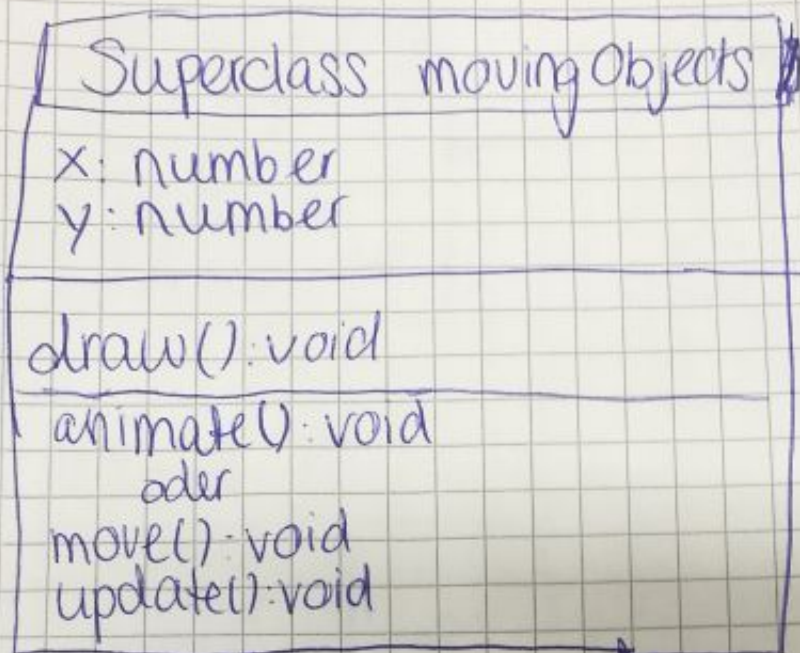 Superclass movingObjects
x: number
y: number
draw(): void
animate(): void
oder
move(): void
update(): void